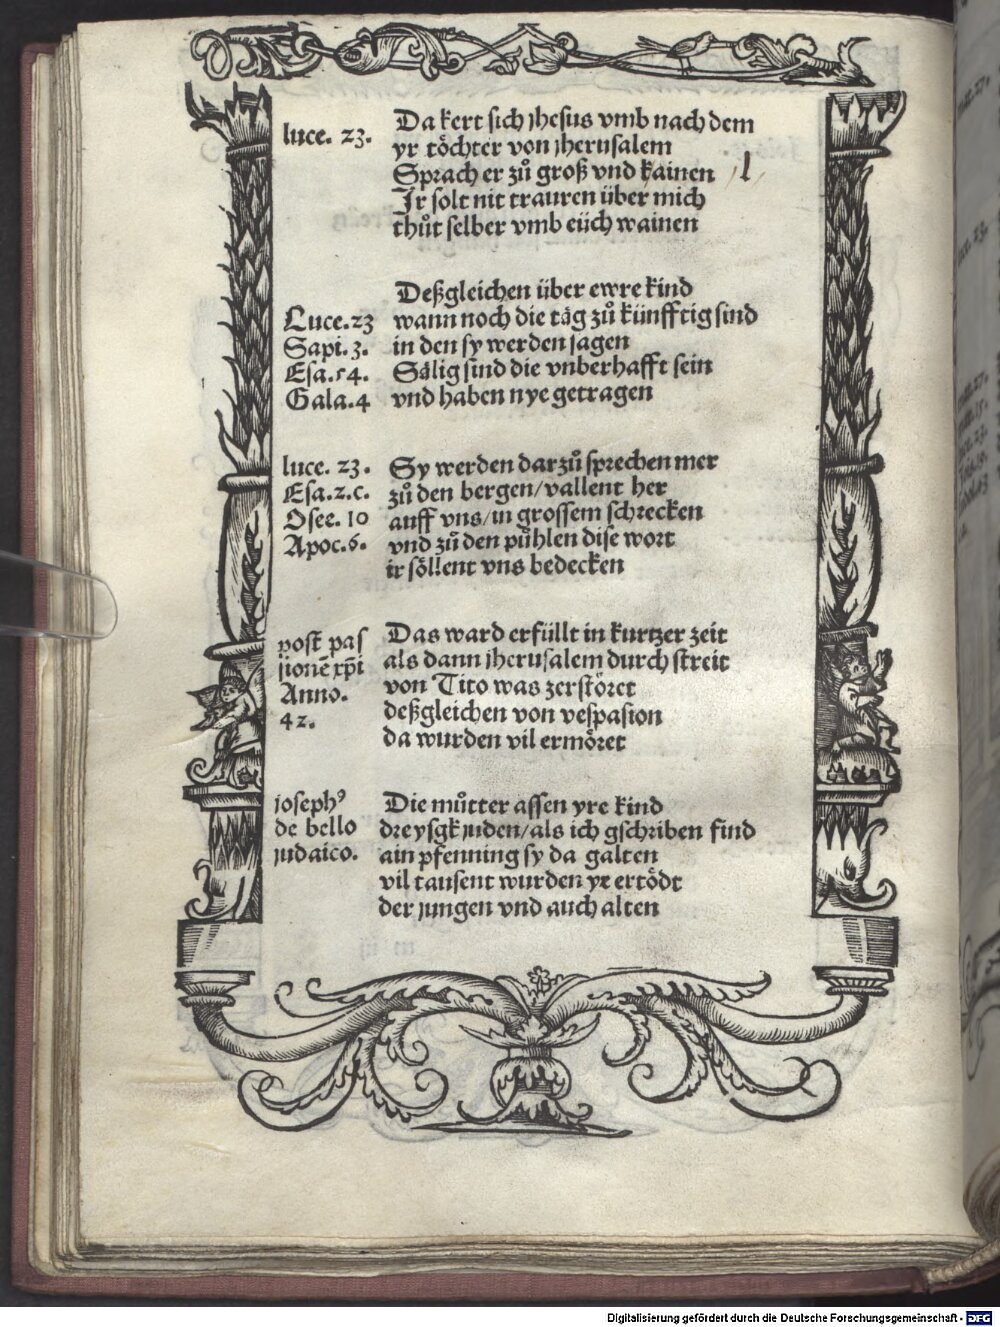 luce. 23.
Da kert sich jhesus vmb nach dem
yr töchter von jherusalem
Sprach er zů groß vnd kainen
Ir solt nit trauren über mich
thůt selber vmb eüch wainen
Luce.23
Sapi.3.
Esa.54.
Gala.4
Deßgleichen über ewre kind
wann noch die täg zů künfftig sind
in den sy werden sagen
Sälig sind die vnberhafft sein
vnd haben nye getragen
luce. 23.
Esa.2.c.
Osee. 10
Apoc.6.
Sy werden darzů sprechen mer
zů den bergen/vallent her
auff vns/in grossem schrecken
vnd zů den pühlen dise wort
ir söllent vns bedecken
post pas
sionē xp̄i
Anno.
42.
Das ward erfüllt in kurtzer zeit
als dann jherusalem durch streit
von Tito was zerstöret
deßgleichen von vespasion
da wurden vil ermöret
ioseph⁹
de bello
judaico.
Die můtter assen yre kind
dreysgk juden/als ich gschriben find
ain pfenning sy da galten
vil tausent wurden yr ertödt
der jungen vnd auch alten
Digitalisierung gefördert durch die Deutsche Forschungsgemeinschaft - DFG